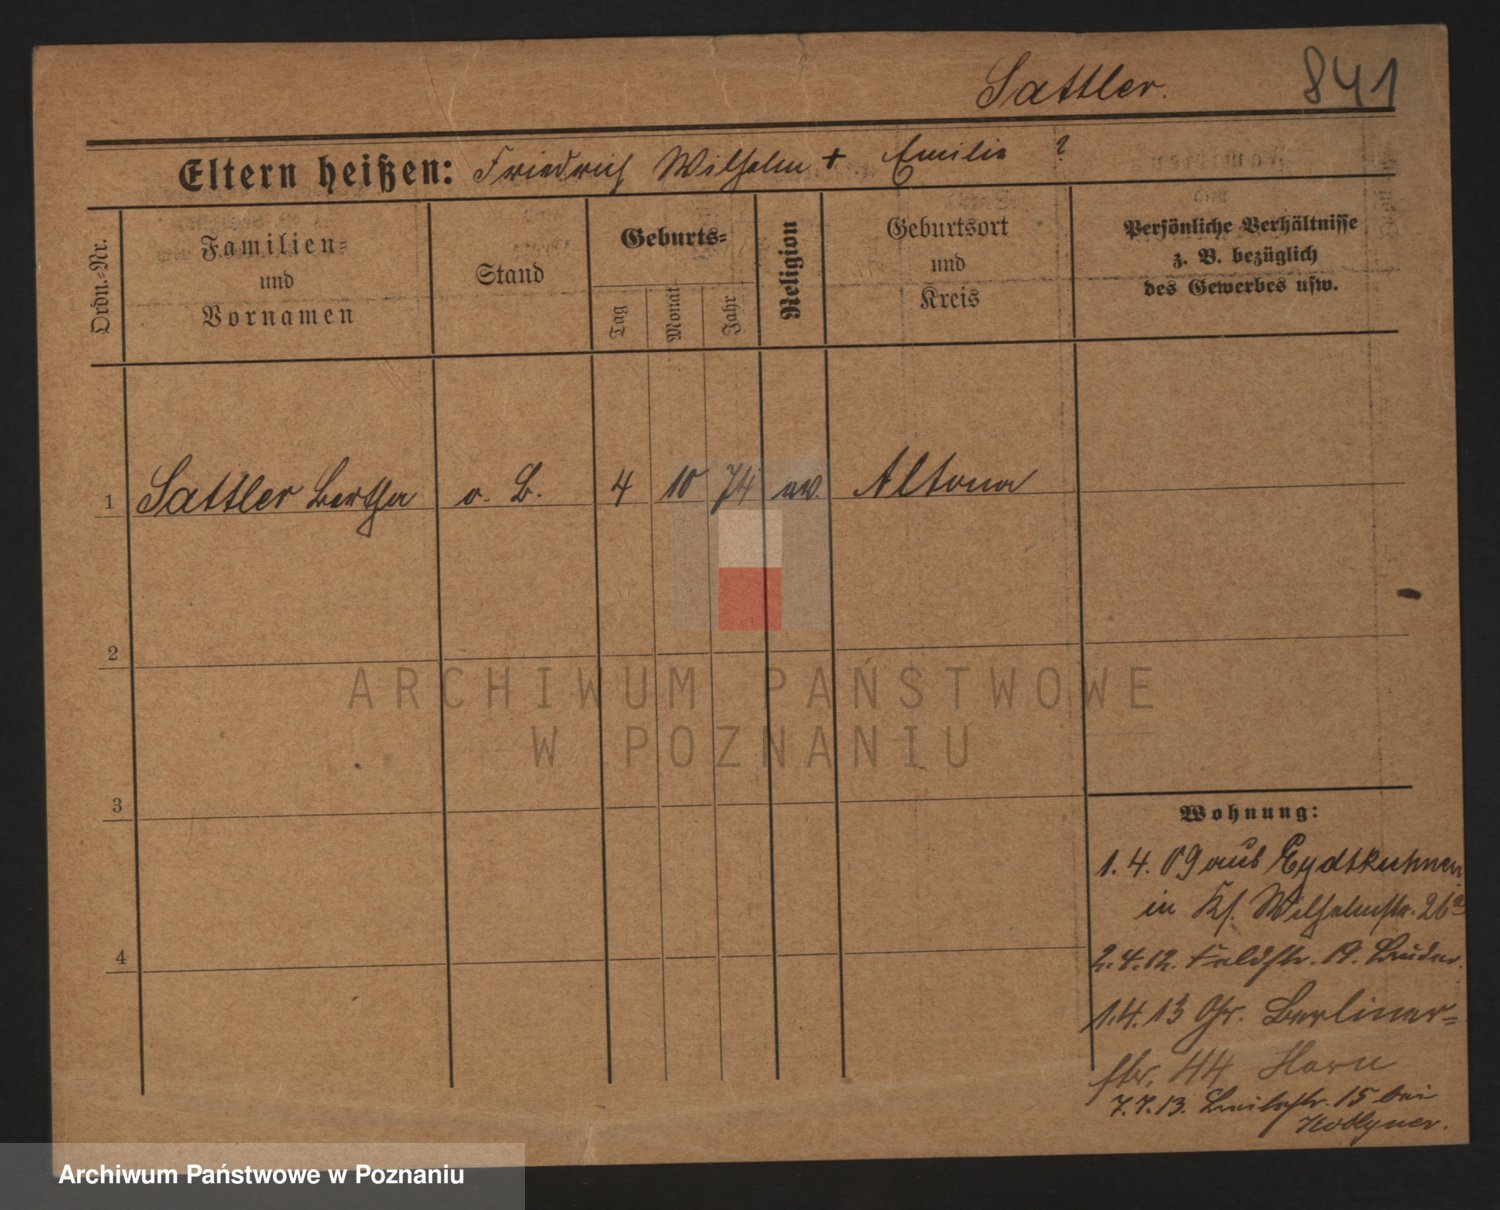 Sattler.
841
Eltern heißen: Friedrich Wilhelm + Emilie ?
Ordn.-Nr.
Familien-
und
Vornamen
Stand
Geburts-
Tag
Monat
Jahr
Religion
Geburtsort
und
Kreis
Persönliche Verhältnisse
z. B. bezüglich
des Gewerbes usw.
1 Sattler Bertha o. B. 4 10 74 ev. Altona
2
3
4
Wohnung:
1. 4. 09 aus Eydtkuhnen
in Ks. Wilhelmstr. 26a
2. 4. 12. Feldstr. 19. Bruder.
1. 4. 13 Gr. Berliner-
str. 44 Horn
7. 7. 13. 15 bei
ARCHIWUM PAŃSTWOWE
W POZNANIU
Archiwum Państwowe w Poznaniu